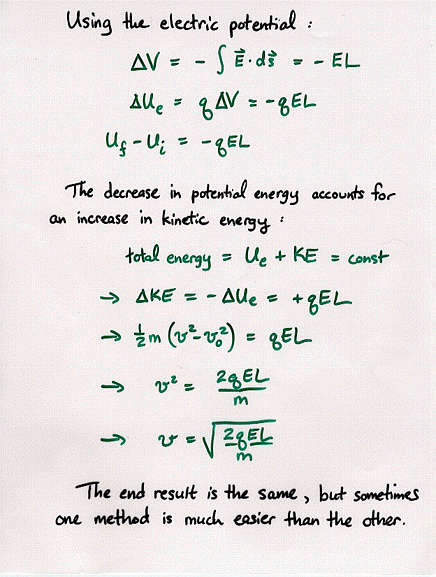 Using the electric potential :
ΔV = - ∫ E⃗ · ds⃗ = - EL
ΔUe = qΔV = -qEL
Uf - Ui = -qEL
The decrease in potential energy accounts for
an increase in kinetic energy :
total energy = Ue + KE = const
→ ΔKE = -ΔUe = +qEL
→ ½m (v² - v₀²) = qEL
→ v² = 2qEL/m
→ v = √(2qEL/m)
The end result is the same, but sometimes
one method is much easier than the other.